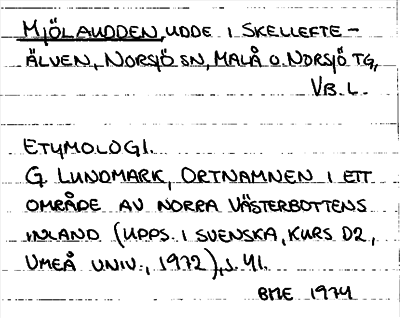 MJÖLAUDDEN, UDDE I SKELLEFTE-
ÄLVEN, NORSJÖ SN, MALÅ O. NORSJÖ TG,
VB. L.
ETYMOLOGI.
G. LUNDMARK, ORTNAMNEN I ETT
OMRÅDE AV NORRA VÄSTERBOTTENS
INLAND (UPPS. I SVENSKA, KURS D2,
UMEÅ UNIV., 1972), S. 41.
BME 1974